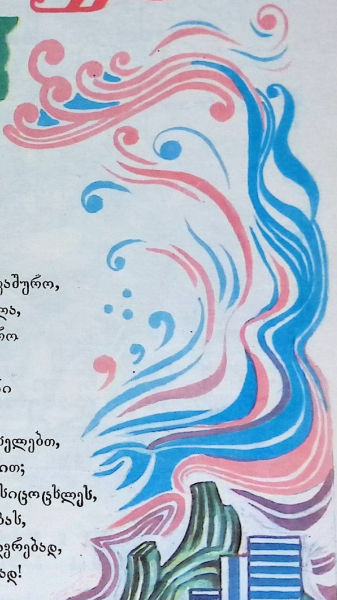 ვაშურო,
ლა,
რო
ნი
ხელებთ,
ით;
სიცოცხლეს,
ბას,
ერებად,
ად!